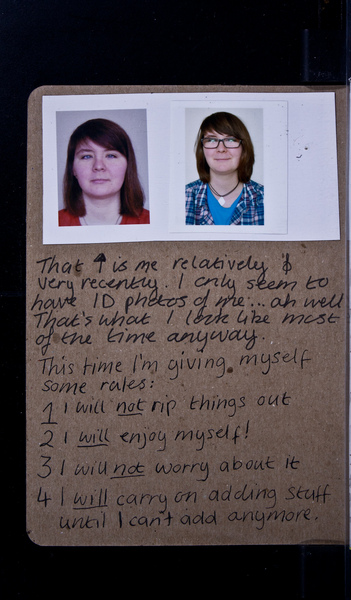 That ↑ is me relatively &
very recently. I only seem to
have ID photos of me... ah well
That's what I look like most
of the time anyway.
This time I'm giving myself
some rules:
1 I will not rip things out
2 I will enjoy myself!
3 I will not worry about it
4 I will carry on adding stuff
until I can't add anymore.